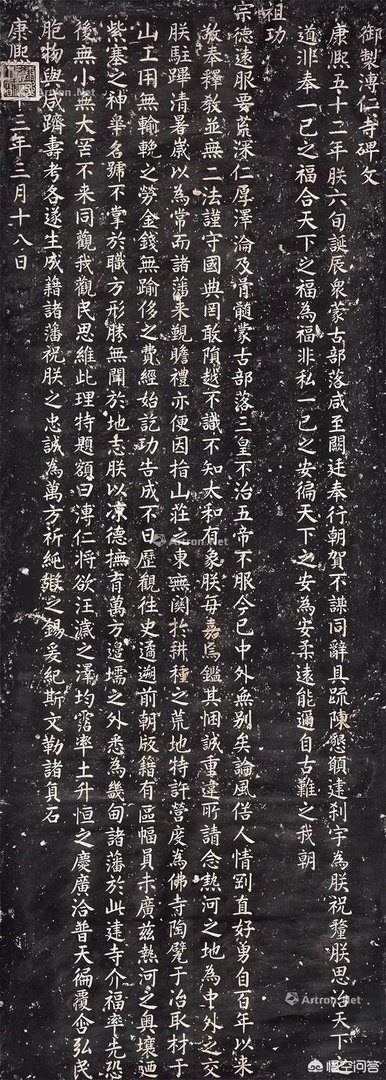 御製溥仁寺碑文
康熙五十二年朕六旬誕辰眾蒙古部落咸至闕廷奉行朝賀不謀同辭具疏陳懇願建剎宇為朕祝釐朕思治天下之
道非奉一己之福合天下之福為福非私一己之安徧天下之安為安柔遠能邇自古難之我朝
祖功
宗德遠服要荒深仁厚澤淪及骨髓蒙古部落三皇不治五帝不服今已中外無別矣論風俗人情剛直好勇自百年以來
敬奉釋教並無二法謹守國典罔敢隕越不識不知太和有象朕每嘉焉鑑其悃誠重違所請念熱河之地為中外之交
朕駐蹕清暑歲以為常而諸藩來覲瞻禮亦便因拾山莊之東無關於耕種之荒地特許營度為佛寺陶甓于冶取材于
山工用無輸輓之勞金錢無踰侈之費經始訖功告成不日歷觀往史遞邇前朝版籍有區幅員未廣茲熱河之奧壤迺
紫塞之神皋名號不掌於職方形勝無聞於地志朕以涼德撫育萬方邊壖之外悉為畿甸諸藩於此建寺介福率先恐
後無小無大罔不來同觀我觀民思維此理特題額曰溥仁將欲汪濊之澤均霑率土升恒之慶廣洽普天徧覆含弘民
胞物與咸躋壽考各遂生成藉諸藩祝朕之忠誠為萬方祈純嘏之錫爰紀斯文勒諸貞石
康熙 十二年三月十八日
Artron.Net
Artron.Net
Artron.Net
悟空问答